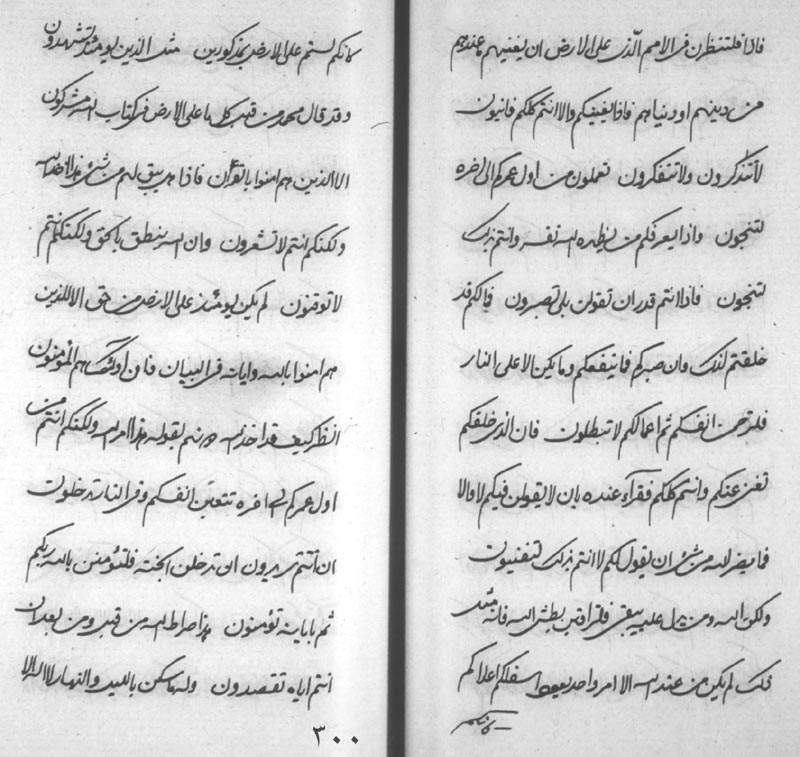 فاذا فلتنظرن فى الامم الذى على الارض ان يغنيهم ما عندهم
من دينهم او دنياهم فاذا يغنيكم والا انتم كلكم فانيون
لا تتذكرون ولا تتفكرون تعملون من اول عمركم الى اخره
لتنجون واذا يعرفكم من يظهره الله نفسه وانتم بذلك
لتنجون فاذا انتم قدر ان تقولن بلى تصبرون فما لكم قد
خلقتم لذلك وان صبركم فما ينفعكم وما يكن الا على النار
فلترحمن انفسكم ثم اعمالكم لا تبطلون فان الذى خلقكم
تغنى عنكم وانتم كلكم فقرآء عنده بان لا يقولن فيكم لا والا
فما يضر الله من شىء ان يقول لكم لا انتم بذلك لتفنيون
ولكن الله ومن يدل عليه يبقى فلتراقبن بطش الله فانه مثل
ذلك لم يكن من عند الله الا امر واحد يجعل اسفلكم اعلاكم
كانكم
كانكم لستم على الارض بمذكورين مثل الذين يومئذ تشهدون
وقد قال محمد من قبل كل ما على الارض فى كتاب الله مشركون
الا الذين هم امنوا بالقرآن فاذا لم يبق لهم من شىء هذا
ولكنكم انتم لا تشعرون وان الله ينطق بالحق ولكنكم انتم
لا توقنون لم يكن يومئذ على الارض من حق الا للذين
هم امنوا بالله واياته فى البيان فان اولئك هم المؤمنون
انظر كيف قد اخذ الله دينهم بقوله هذا امر الله ولكنكم انتم من
اول عمركم الى اخره تتعبن انفسكم وفى النار تدخلون
ان انتم تريدون ان تدخلن الجنة فلتؤمنن بالله ربكم
ثم باياته تؤمنون هذا صراط الله من قبل ومن بعد ان
انتم اياه تقصدون وله ما سكن بالليل والنهار لا اله الا
٣٠٠